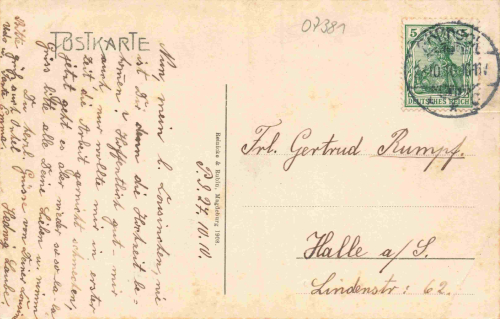 07381
POSTKARTE
5
DEUTSCHES REICH
Nun mein l. Cousinchen, wie
ist Dir denn die Hochzeit be-
kommen? Hoffentlich gut - mir
auch, nur wollte mir in erster
Zeit die Arbeit garnicht schmecken,
jetzt geht es aber wieder, so so la la
Grüss bitte alle Deine Lieben u. nimm
Du herzl. Grüsse von Deiner Cousine
Hedwig
Bitte grüß auch Onkel
u. Tante Emma.
P. S. 27. 10. 10.
Reinicke & Rubin, Magdeburg 1909.
Frl. Gertrud Rumpf.
Halle a/S.
Lindenstr: 62.